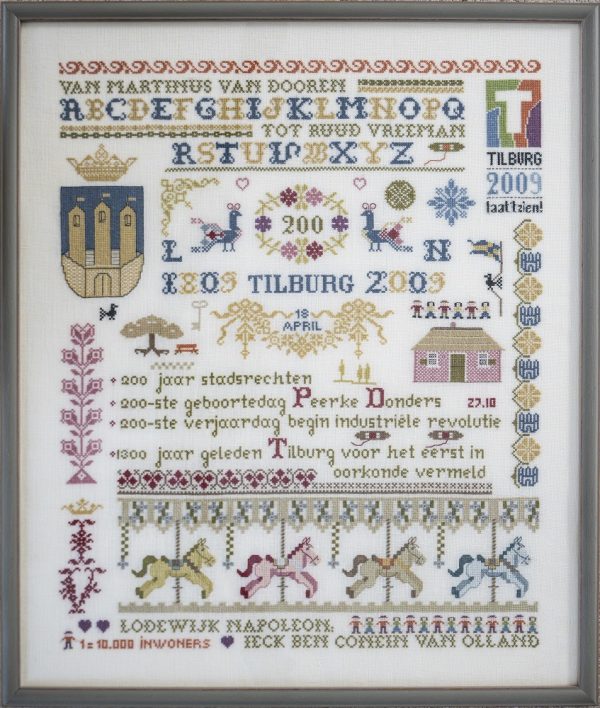 VAN MARTINUS VAN DOOREN
ABCDEFGHIJKLMNOPQ
TOT RUUD VREEMAN
RSTUVWXYZ
T
TILBURG
2009
laat zien!
200
L N
1809 TILBURG 2009
18
APRIL
200 jaar stadsrechten
200-ste geboortedag Peerke Donders 27.10
200-ste verjaardag begin industriële revolutie
1300 jaar geleden Tilburg voor het eerst in
oorkonde vermeld
LODEWIJK NAPOLEON:
1 = 10.000 INWONERS
IECK BEN CONEIN VAN OLLAND